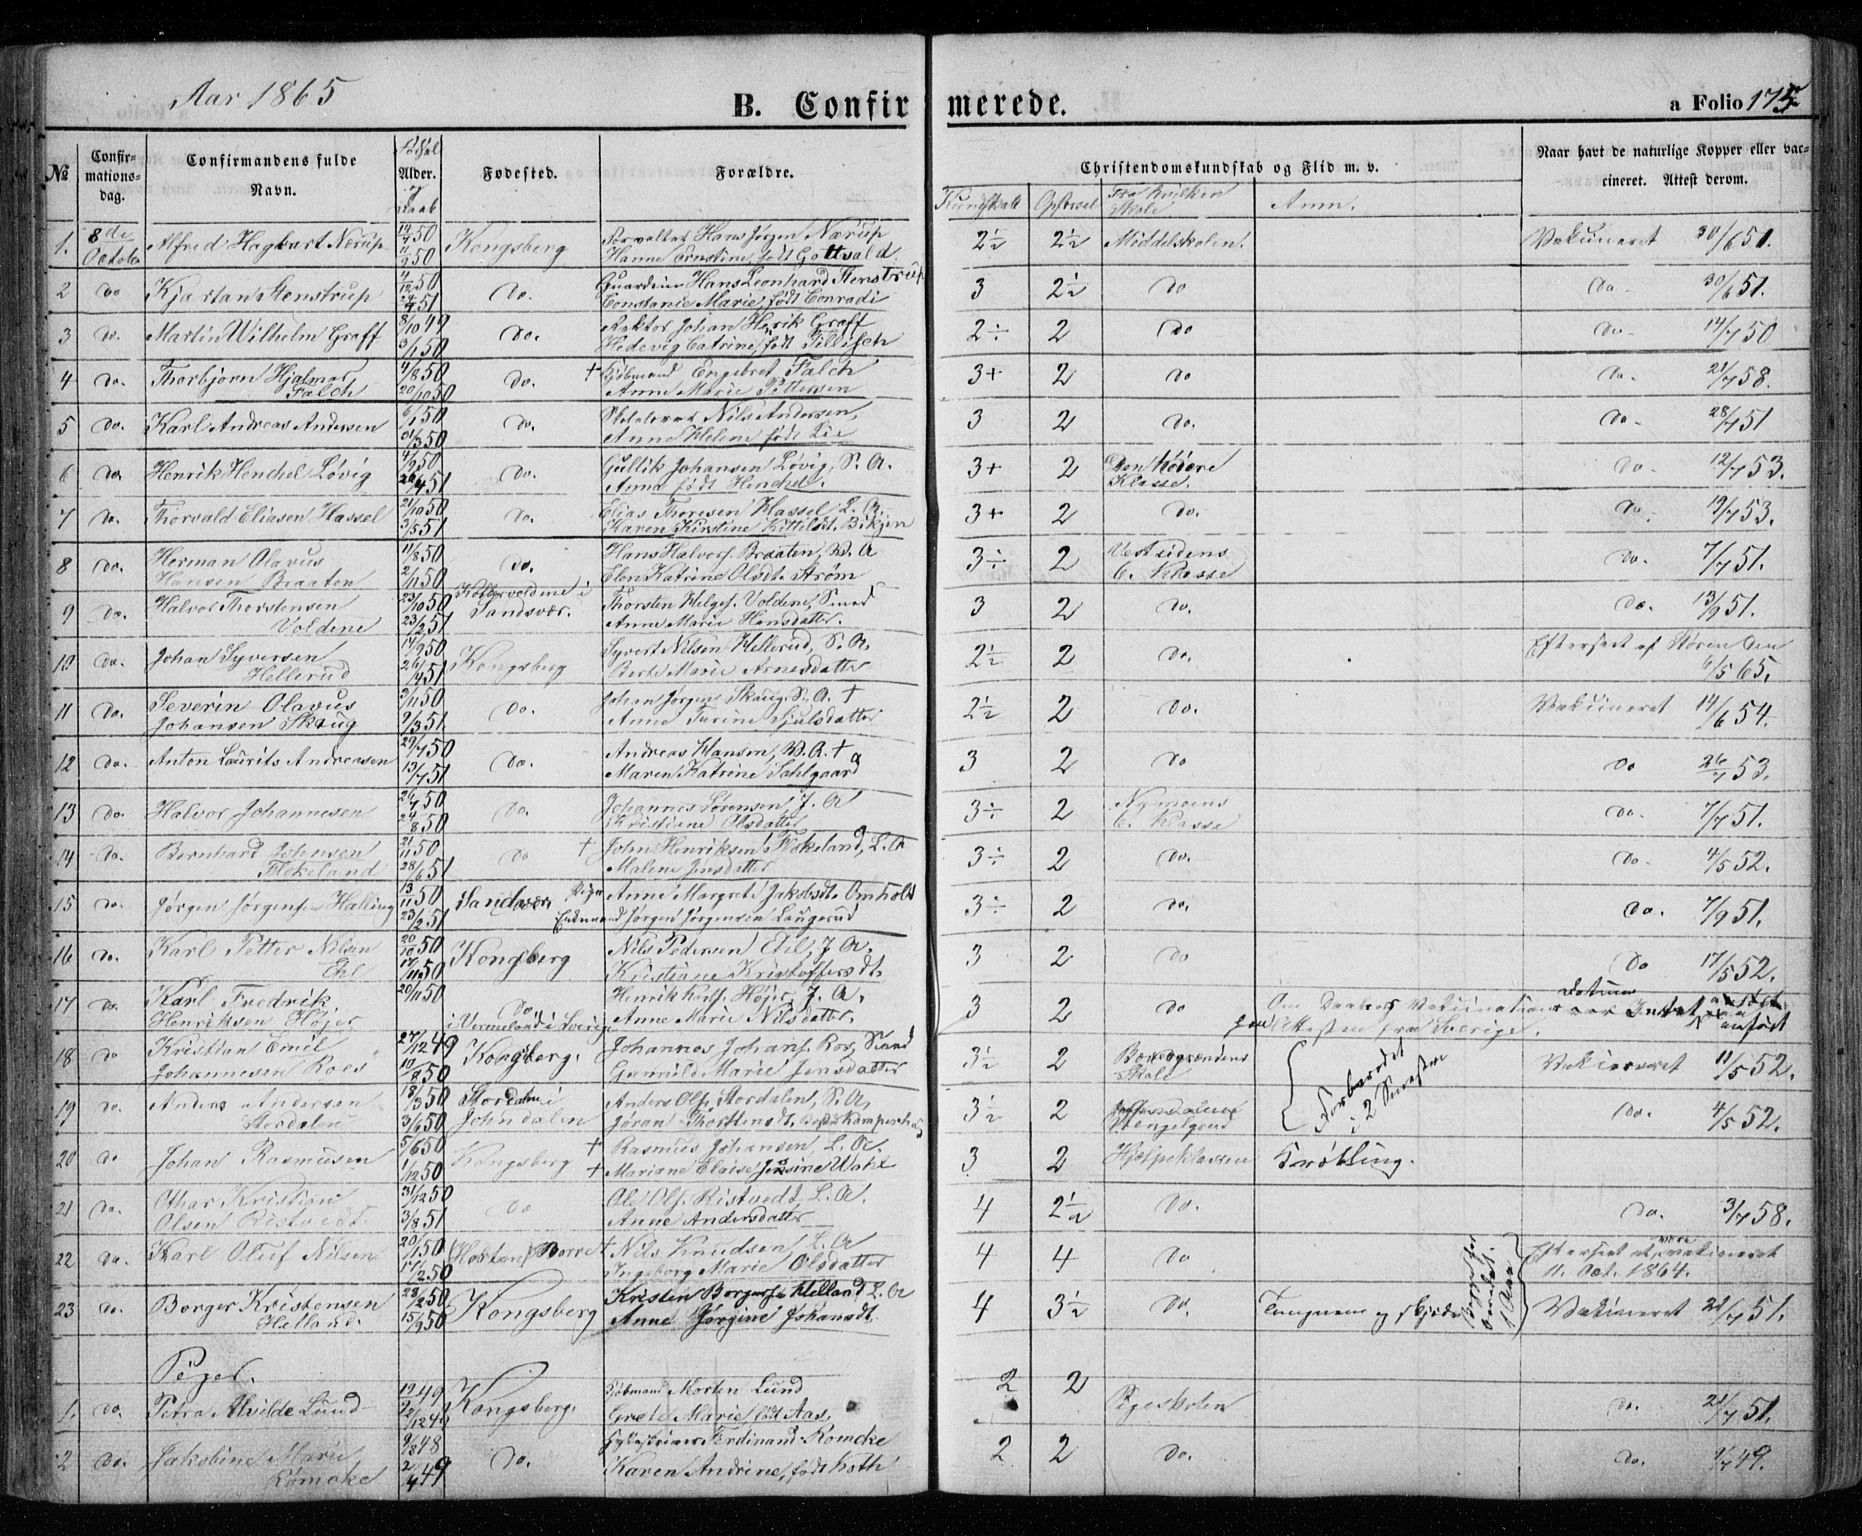 Aar 1865
B. Confirmerede.
a Folio 175
№ Confirmations-dag. Confirmandens fulde Navn. Fødsel Alder. Daab Fødested. Forældre. Christendomskundskab og Flid m. v. Naar havt de naturlige Kopper eller vaccineret. Attest derom.
Kundskab Opførsel Fra hvilken Skole Anm.
1. 8de October Alfred Hagbart Nerup 14/7 50 Kongsberg Forvalter Hans Jørgen Nærup 2½ 2½ Middelskolen. Vakcineret 30/6 51.
Hanne Ernstine, født Gottvald
2 do Kjartan Stenstrup 4/12 50 24/4 51 Do. Guardein Hans Leonhard Stenstrup 3 2½ do do 30/6 51.
Constance Marie, født Conradi
3 do. Martin Wilhelm Graff 8/10 49 3/1 50 Do. Rektor Johan Henrik Graff 2÷ 2 do do 14/7 50
Hedevig Catrine, født Tillisch
4 do. Thorbjørn Hjalmar Falch 4/8 50 20/10 50 do. † Kjøbmand Engebret Falch 3+ 2 do do. 21/7 58.
Anne Marie Pettersen
5 do. Karl Andreas Andersen 6/1 50 31/3 50 do. Nils Andersen, 3 2 do. do 28/7 51
Anne Helene født Lie
6 do. Henrik Henchel Løvig 4/9 50 26/4 51 do. Gullik Johansen Løvig, S. A. 3+ 2 Den høiere Klasse. do 12/7 53.
Anna født Henchel.
7 do. Thorvald Eliasen Hassel 21/10 50 3/5 51 do. Elias Thoresen Hassel L. A. 3+ 2 do. do. 19/7 53.
Karen Kirstine Kittilsdt.
8 do. Herman Olavus Hansen Braaten 11/8 50 2/11 50 do. Hans Halvors. Braaten, B. A 3÷ 2 Vestsidens C. Klasse do. 7/7 51.
Elen Katrine Olsdt. Strøm
9 do. Halvor Thorstensen Voldene 23/10 50 23/2 51 i Sandsvær. Thorsten Helges. Voldene, Smed 3 2 do. do. 13/9 51.
Anne Marie Hansdatter.
10 do. Johan Syversen Hellerud 14/9 50 26/4 51 Kongsberg Syvert Nilsen Hellerud, S. A. 2½ 2 do. Efterseet af Støren den 6/5 65.
Berte Marie Arnesdatter
11 do. Severin Olavus Johansen Skaug 2/11 50 9/3 51 do. Johan Jørgen Skaug S. A. † 2½ 2 do. Vakcineret 14/6 54.
Anne Turine Hjulsdatter
12 do. Anton Laurits Andreasen 29/7 50 13/7 51 do. Andreas Hansen, B. A. † 3 2 do do 26/7 53.
Maren Katrine Dahlgaard
13 do. Halvor Johannesen 26/7 50 24/8 50 do. Johannes Sørensen, J. A 3÷ 2 Nymoens C. Klasse do. 7/7 51.
Kristiane Olsdatter
14 do. Bernhard Johnsen Flekeland 21/11 50 28/6 51 do † John Henriksen Flekeland, L. A 3÷ 2 do. do. 4/5 52.
Malene Jensdatter
15 do. Jørgen Jørgens. Halling 13/11 50 23/2 51 Sandsvær Pige Anne Margrete Jakobsdt. Omholt 3÷ 2 do. do. 7/9 51.
Enkemand Jørgen Jørgensen Laugerud
16 do. Karl Petter Nilsen Ehl 20/10 50 17/11 50 Kongsberg Nils Pedersen Ehl, J A. 3 2 do do 17/5 52.
Kristiane Kristoffersdt.
17 do. Karl Fredrik Henriksen Højer 20/11 50 do. Henrik Karls. Højer, J. A. 3 2 do Om Daaben Vakcination Datum Intet anført
i Vermeland i Sverige Anne Marie Nilsdatter. Attesten fra Sverige.
18 do. Kristian Emil Johannesen Roes 27/12 49 10/8 50 Kongsberg. Johannes Johans. Ros, Smed 3½ 2 Skole Forberedet i 2 Semestre Vakcineret 11/5 52.
Gunnild Marie Jensdatter
19 do. Anders Andersen Stordalen 18/3 50 3/6 50 Stordalen i Johndalen Anders Ols. Stordalen, S. A, 3½ 2 do. 4/5 52.
Jøran Thorstensdt.
20 do Johan Rasmusen 5/6 50 1/12 50 Kongsberg † Rasmus Johansen, L. A. 3 2 Hjælpeklassen Krøbling.
† Mariane Elaise Jensine Wahl
21 do. Othar Kristian Olsen Ristvedt. 31/12 50 3/8 51 do Ole Ols. Ristvedt L. A. 4 2½ do. do. 3/7 58.
Anne Andersdatter
22 do. Karl Oluf Nilsen 20/1 50 17/2 50 (Horten) Borre † Nils Knudsen, L. A 4 4 do Efterseet at være vakcineret
Ingeborg Marie Olsdatter 11. Oct. 1864.
23 do. Borger Kristensen Helland. 23/2 50 15/9 50 Kongsberg Kristen Borgers. Helland L. A 4 3½ do. Tungnem og Vakcineret 21/7 51.
Anne Jørgine Johansdt.
Piger.
1. do. Petra Alvilde Lund 19/9 49 2/12 49 Kongsberg. Kjøbmand Morten Lund 2 2 Pigeskolen do. 21/7 51.
Grete Marie, født Aas.
2 do. Jakobine Marie Rømcke 9/8 48 2/4 49 do. Ferdinand Romcke 2 2 do. do. 1/7 49.
Karen Andrine, født Loth